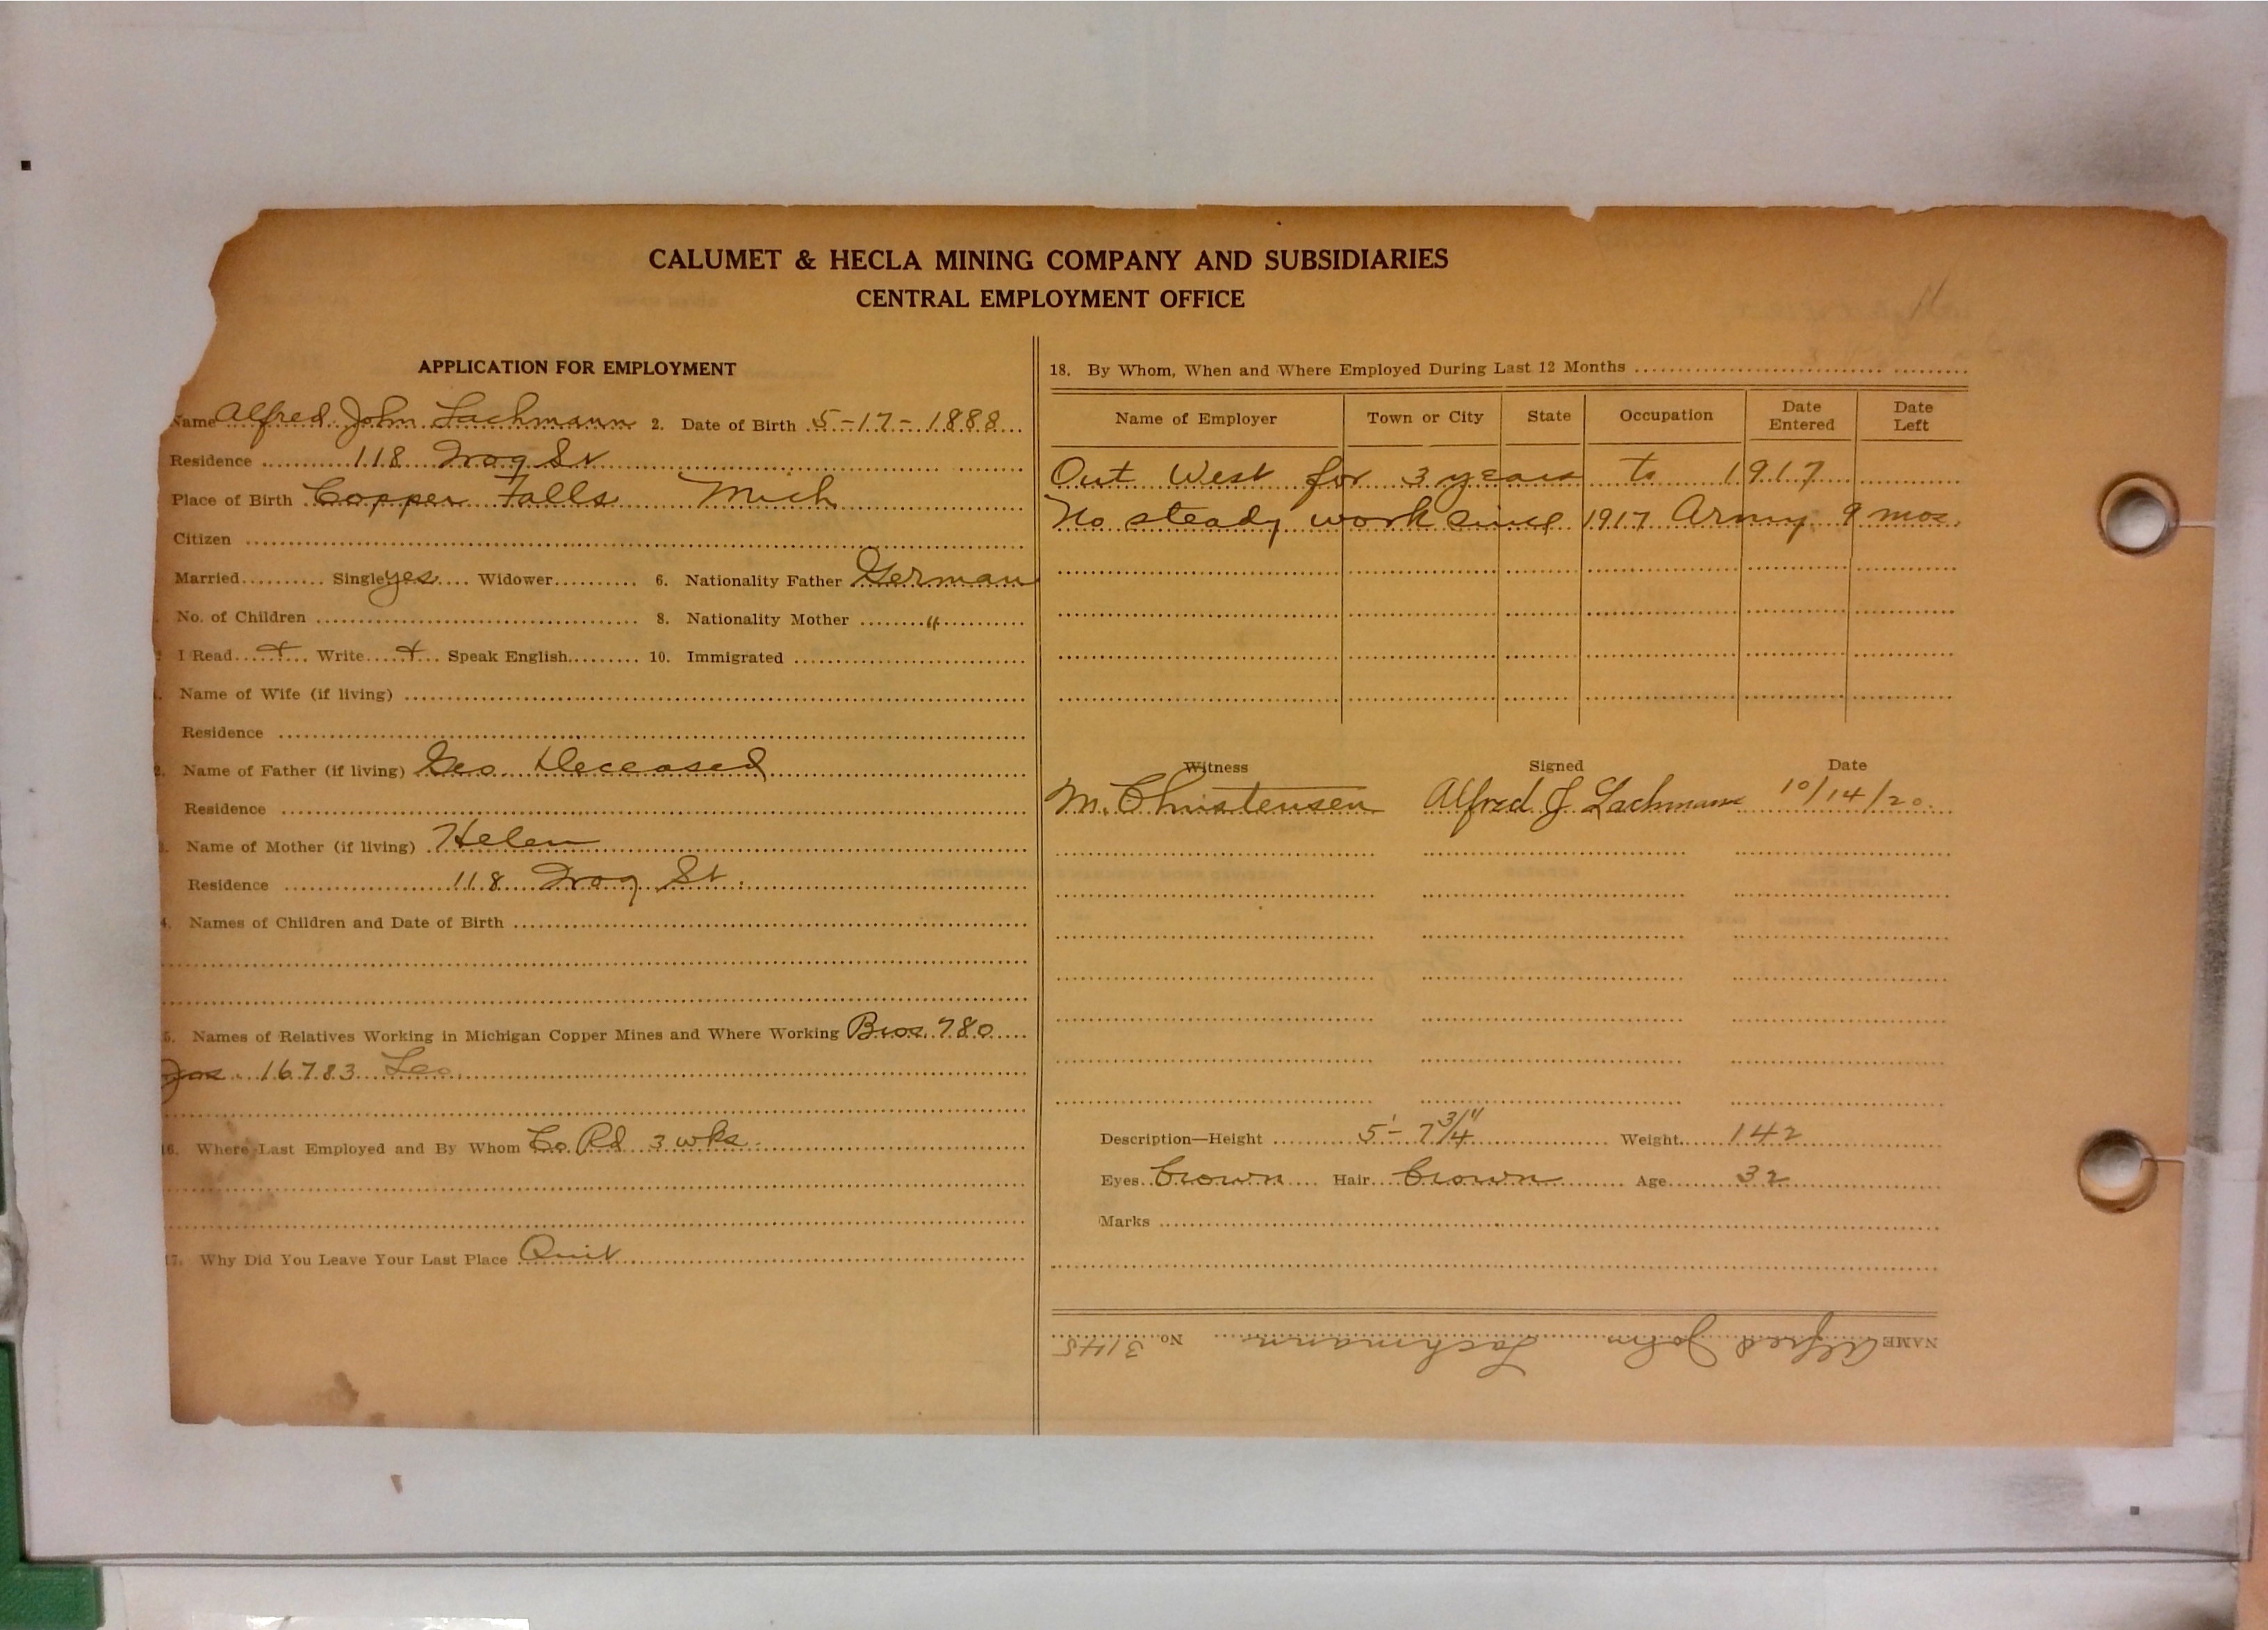 CALUMET & HECLA MINING COMPANY AND SUBSIDIARIES
CENTRAL EMPLOYMENT OFFICE
APPLICATION FOR EMPLOYMENT
Name Alfred John Lachmann 2. Date of Birth 5-17-1888
Residence 118 Frog St
Place of Birth Copper Falls Mich
Citizen
Married Single yes Widower 6. Nationality Father German
No. of Children 8. Nationality Mother "
I Read + Write + Speak English 10. Immigrated
Name of Wife (if living)
Residence
Name of Father (if living) Geo. Deceased
Residence
Name of Mother (if living) Helen
Residence 118 Frog St.
4. Names of Children and Date of Birth
5. Names of Relatives Working in Michigan Copper Mines and Where Working Bros. 780
Jos. 16783 Leo.
16. Where Last Employed and By Whom Co. Rd 3 wks.
17. Why Did You Leave Your Last Place Quit
18. By Whom, When and Where Employed During Last 12 Months
Name of Employer Town or City State Occupation Date Entered Date Left
Out West for 3 years to 1917
No steady work since 1917 Army 9 mos.
Witness Signed Date
M. Christensen Alfred J Lachmann 10/14/20.
Description—Height 5'-7 3/4" Weight 142
Eyes brown Hair brown Age 32
Marks
NAME Alfred John Lachmann No. 3145